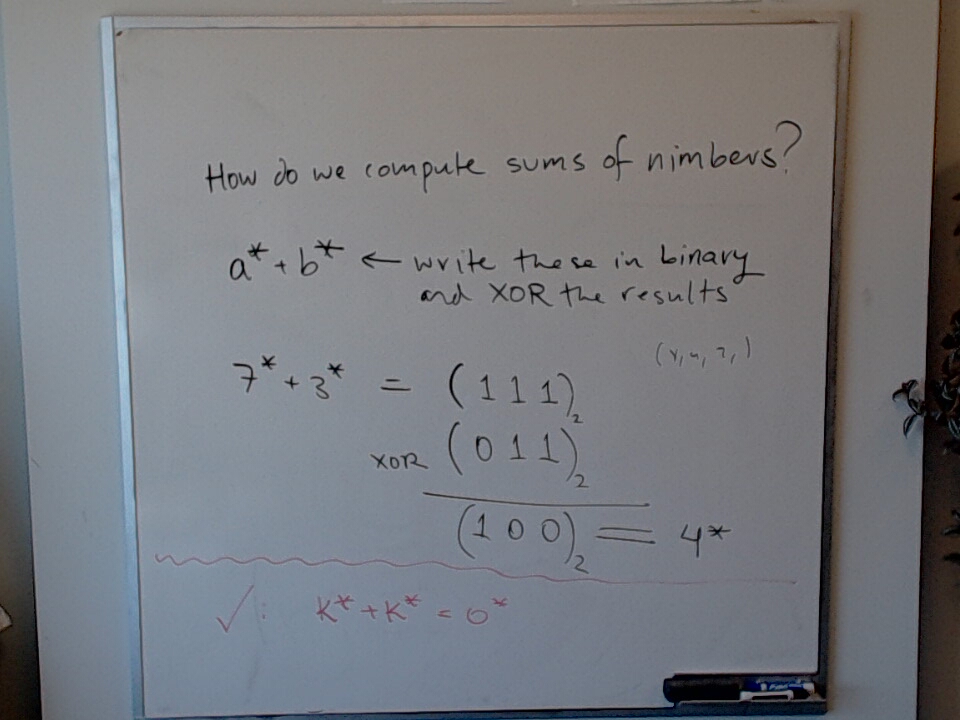 How do we compute sums of nimbers?
a* + b* ← write these in binary
and XOR the results
7* + 3* = (1 1 1)₂
XOR (0 1 1)₂
(1 0 0)₂ = 4*
✓: K* + K* = 0*